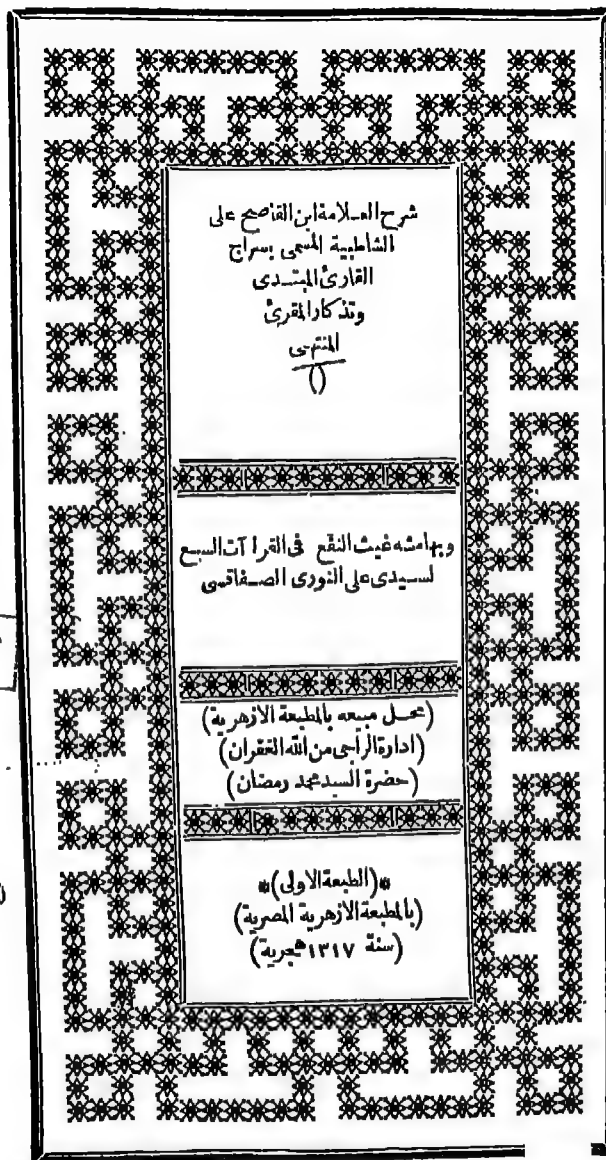 شرح العلامة ابن القاصح على
الشاطبية المسمى بسراج
القارئ المبتدى
وتذكار المقرئ
المنتهى
وبهامشه غيث النفع فى القراآت السبع
لسيدى على النورى الصفاقسى
(محل مبيعه بالمطبعة الازهرية)
(ادارة الراجى من الله الغفران)
(حضرة السيد محمد رمضان)
*(الطبعة الاولى)*
(بالمطبعة الازهرية المصرية)
(سنة ١٣١٧ هجرية)